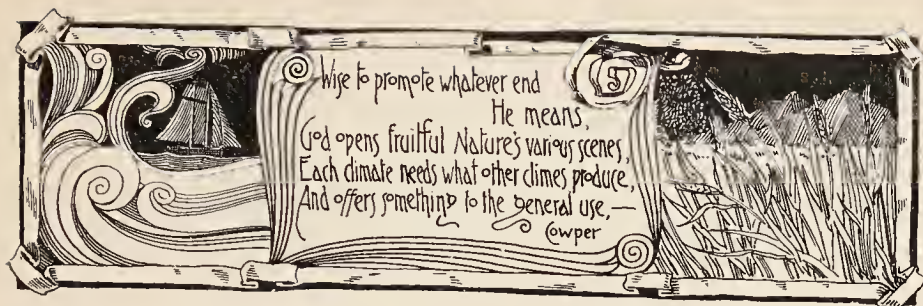 Wise to promote whatever end
He means,
God opens fruitful Nature's various scenes,
Each climate needs what other climes produce,
And offers something to the general use,—
Cowper